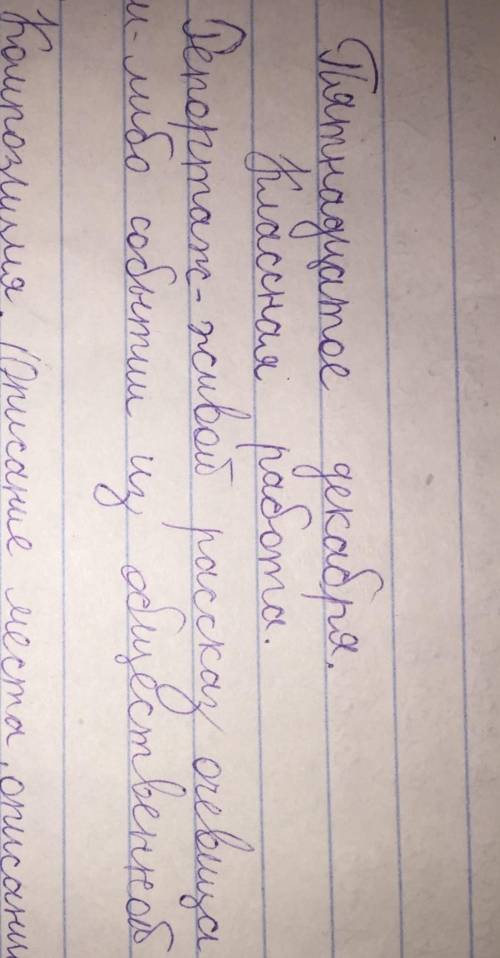 Пятнадцатое декабря.
Классная работа.
Репортаж-живой рассказ очевидца
м-либо событии из общественной
Композиция. Описание места, описани